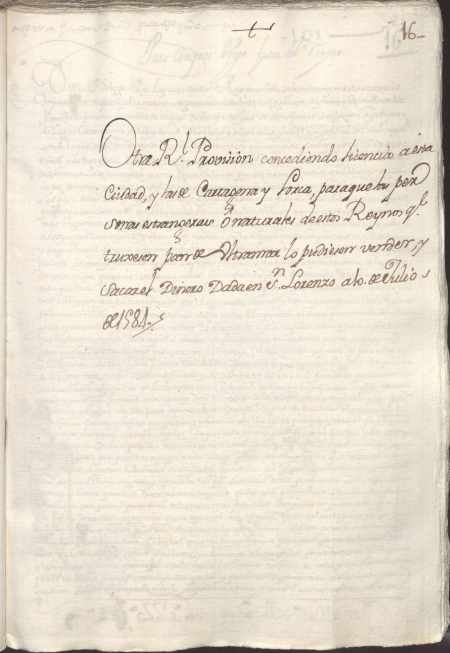 16
Otra Rl. Provision concediendo licencia a esta
Ciudad, y las de Cartagena y Lorca, para que las per
sonas estrangeras ó naturales de estos Reynos q.e
truxesen pan de Ultramar lo pudiesen vender, y
sacar el Dinero Dada en Sn. Lorenzo a 10. de Julio
de 1584.